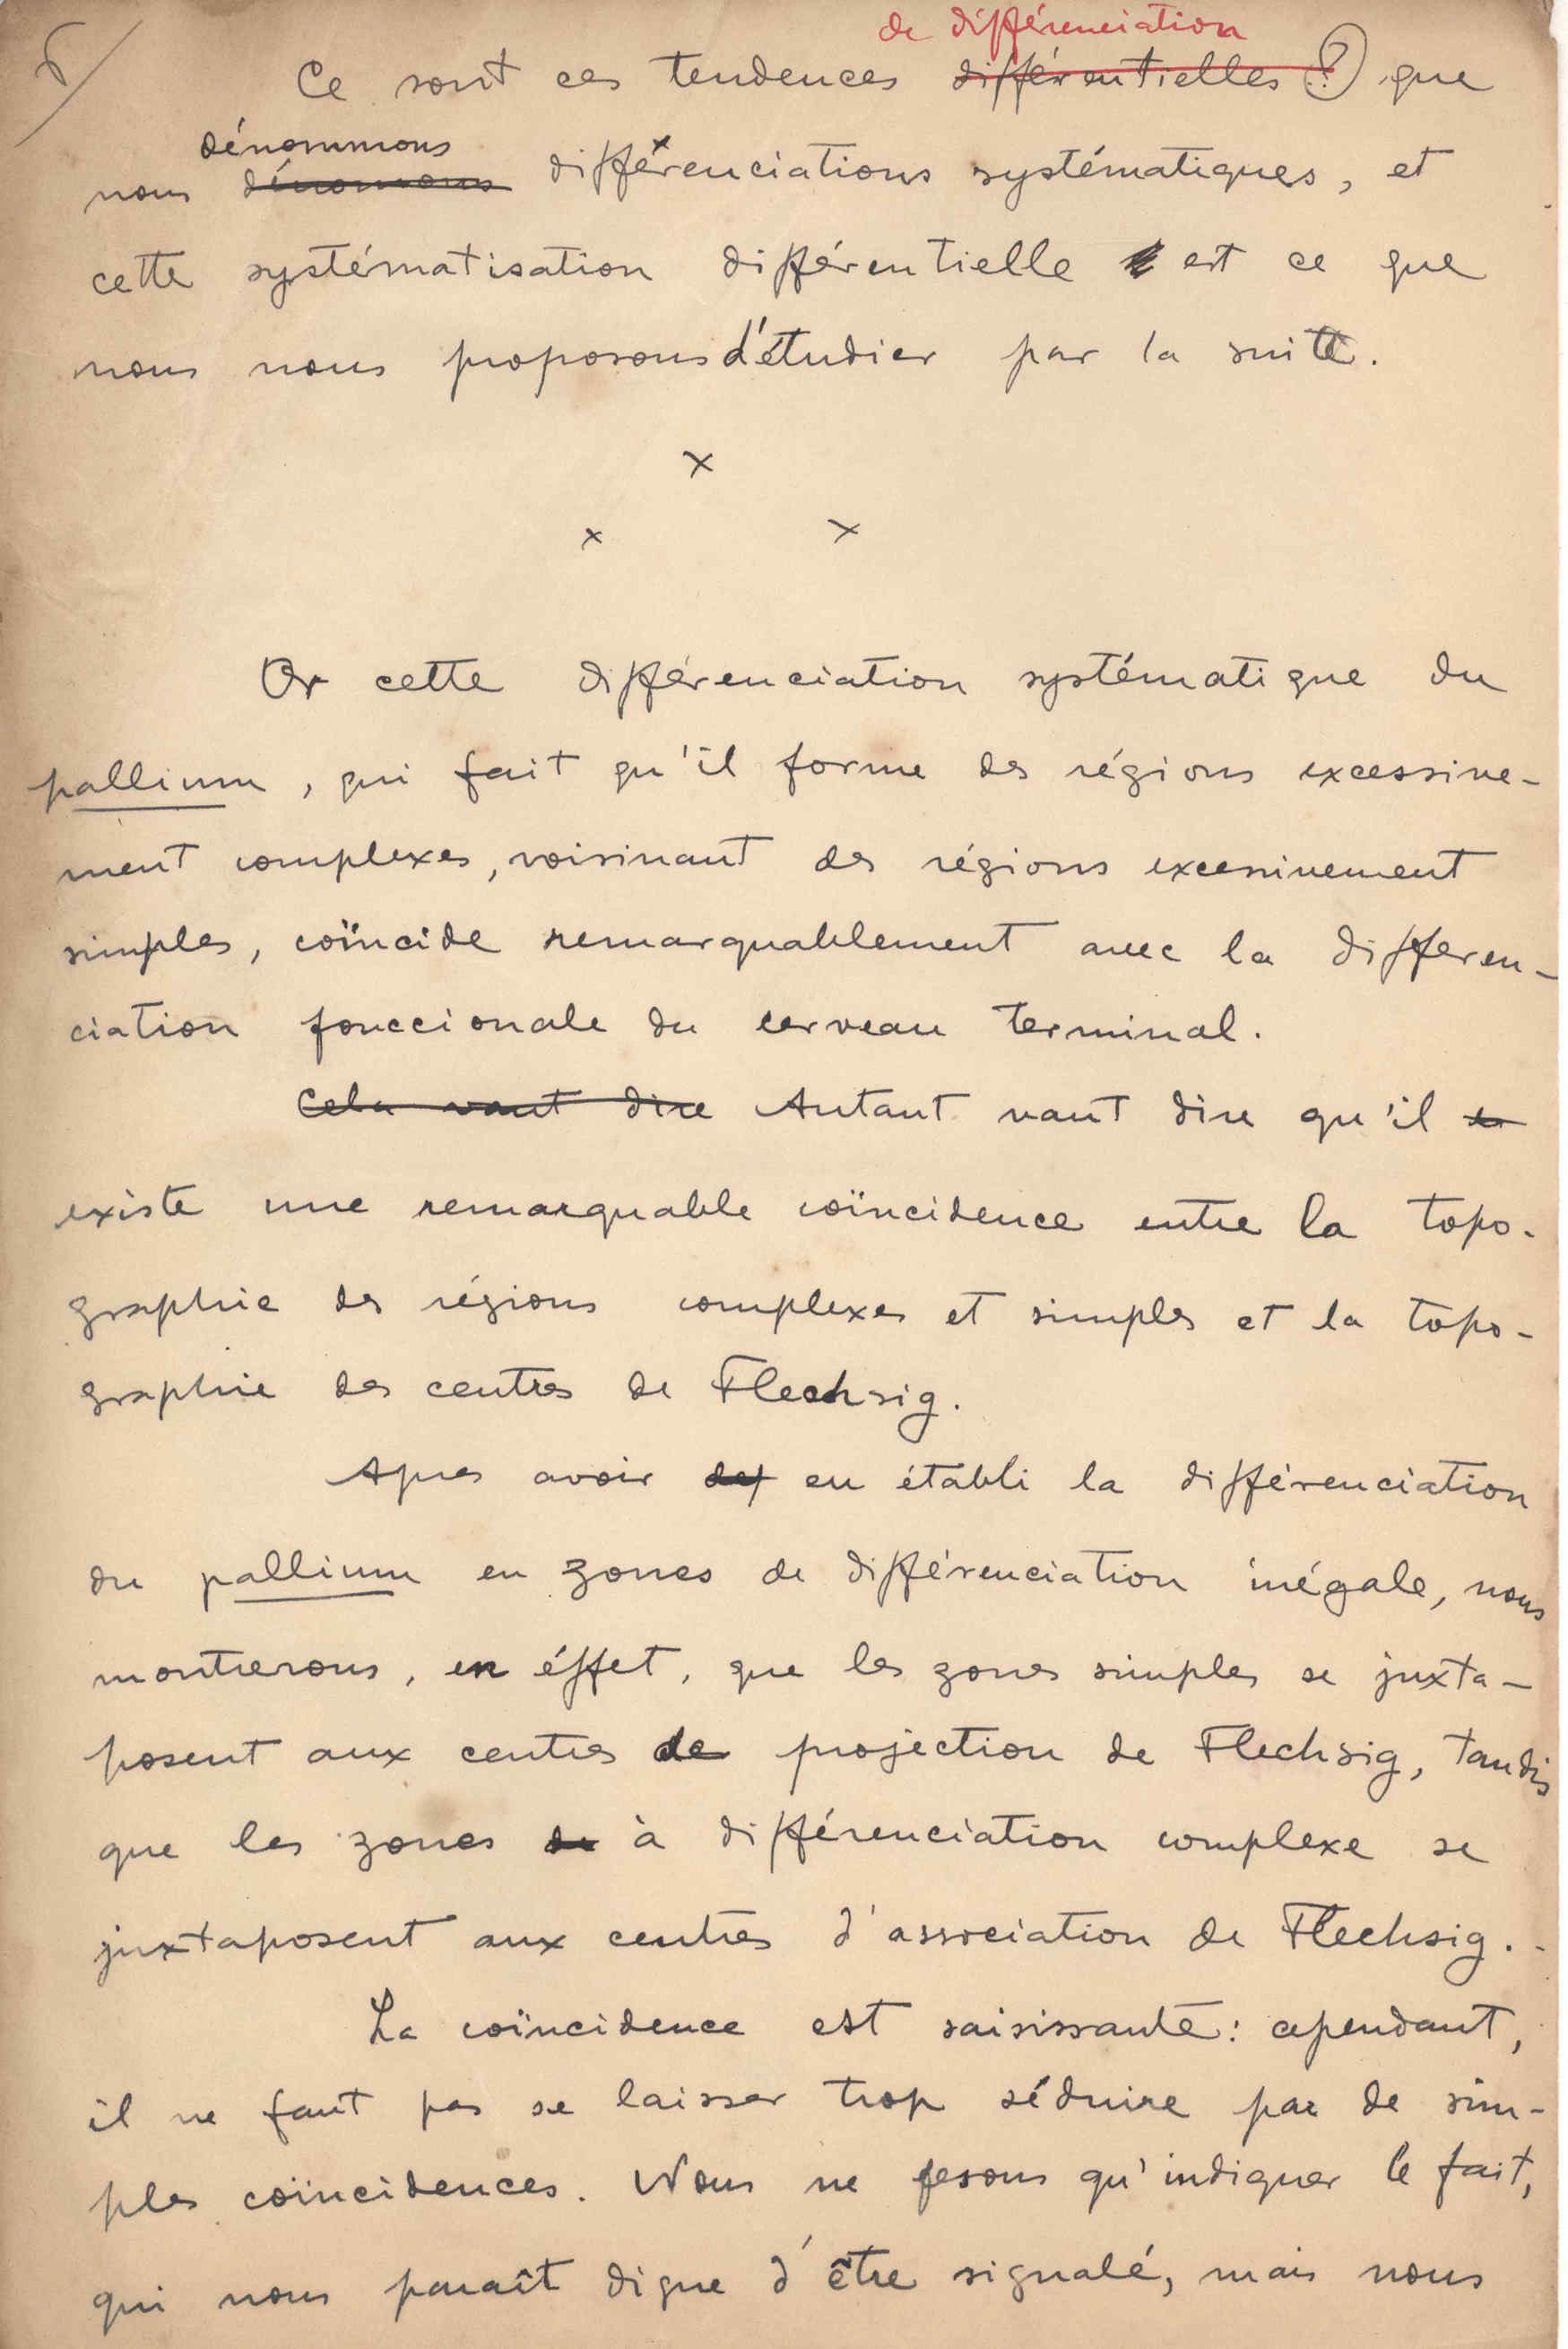 de différenciation
Ce sont ces tendences différentielles (?) que
dénommons
nous dénomons différenciations systématiques, et
cette systématisation différentielle est ce que
nous nous proposons d'étudier par la suite.
x
x x
Or cette différenciation systématique du
pallium, qui fait qu'il forme des régions excessive-
ment complexes, voisinant des régions excessivement
simples, coïncide remarquablement avec la differen-
ciation fonccionale du cerveau terminal.
Cela vaut dire Autant vaut dire qu'il
existe une remarquable coïncidence entre la topo-
graphie des régions complexes et simples et la topo-
graphie des centres de Flechsig.
Apres avoir def en établi la différenciation
du pallium en zones de différenciation inégale, nous
montrerons, en éffet, que les zones simples se juxta-
posent aux centres de projection de Flechsig, tandis
que les zones de à différenciation complexe se
juxtaposent aux centres d'association de Flechsig.
La coïncidence est saisissante: cependant,
il ne faut pas se laisser trop séduire par de sim-
ples coïncidences. Nous ne fesons qu'indiquer le fait,
qui nous paraît digne d'être signalé, mais nous